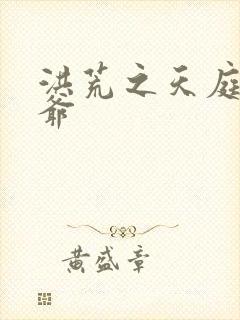 洪荒之天庭
爺
黄盛章